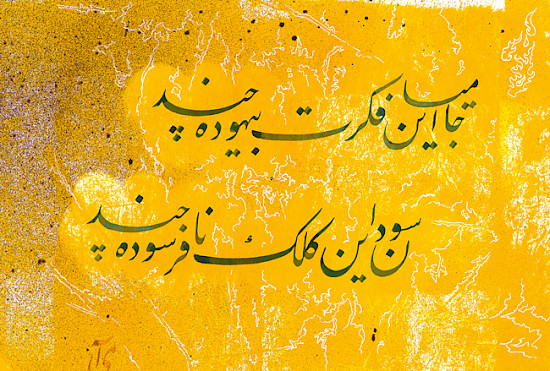 جامیا این فکرت بیهوده چند
سودن این کلک نافرسوده چند